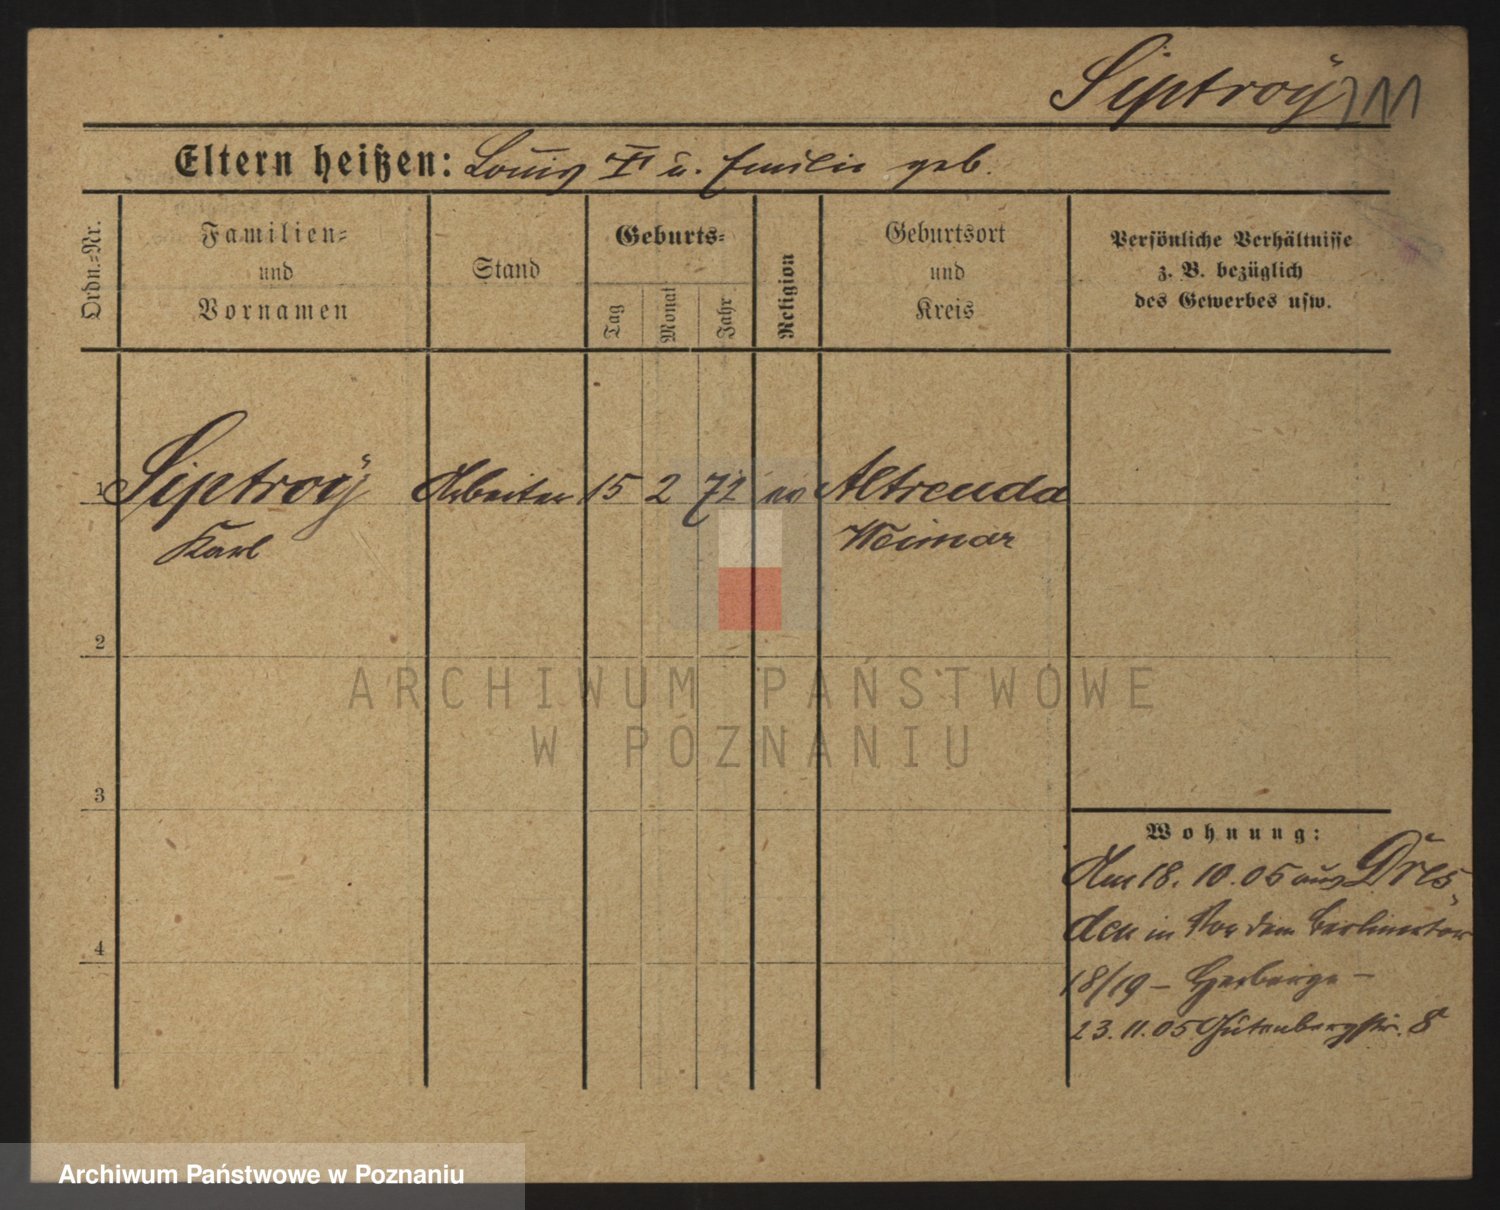 Siptroÿ 211
Eltern heißen: Louis † u. Emilie geb.
Ordn.-Nr.
Familien-
und
Vornamen
Stand
Geburts-
Tag
Monat
Jahr
Religion
Geburtsort
und
Kreis
Persönliche Verhältnisse
z. B. bezüglich
des Gewerbes usw.
1 Siptroÿ Arbeiter 15 2 72 ev Altreuda
Karl Weimar
2
3
4
Wohnung:
Am 18. 10. 05 aus Dres
den in Vor dem Berlinertor
18/19 – Herberge –
23. 11. 05 Gutenbergstr. 8
ARCHIWUM PAŃSTWOWE
W POZNANIU
Archiwum Państwowe w Poznaniu